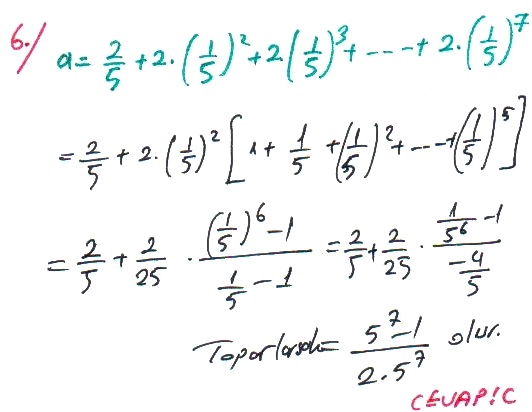 6./ a = 2/5 + 2·(1/5)² + 2(1/5)³ + ---- + 2·(1/5)⁷
= 2/5 + 2·(1/5)² [1 + 1/5 + (1/5)² + ---- + (1/5)⁵]
= 2/5 + 2/25 · ((1/5)⁶ - 1)/(1/5 - 1) = 2/5 + 2/25 · (1/5⁶ - 1)/(-4/5)
Toparlarsak= (5⁷-1)/(2·5⁷) olur.
CEVAP:C